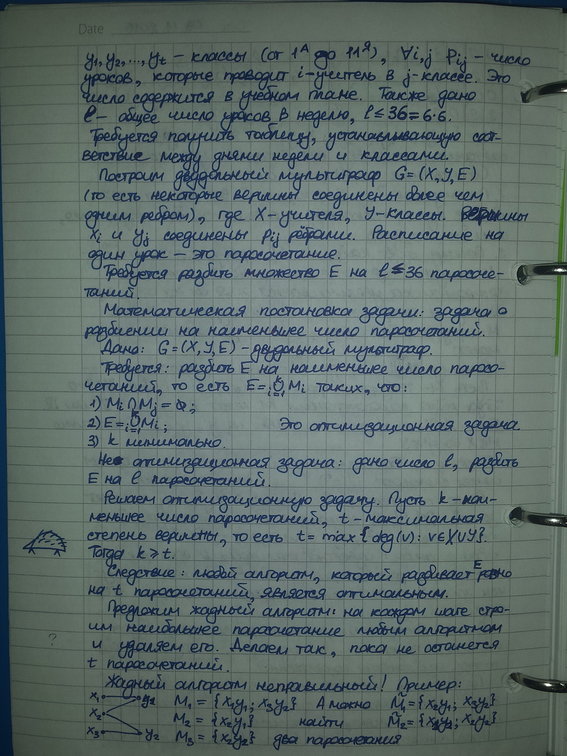 Date
y₁, y₂, ..., yₜ – классы (от 1ᴬ до 11ᴽ), ∀i,j Pᵢⱼ – число
уроков, которые проводит i-учитель в j-классе. Это
число содержится в учебном плане. Также дано
ℓ – общее число уроков в неделю, ℓ ≤ 36 = 6·6.
Требуется получить таблицу, устанавливающую соот-
ветствие между днями недели и классами.
Построим двудольный мультиграф G=(X,Y,E)
(то есть некоторые вершины соединены более чем
одним ребром), где X-учителя, Y-классы. Вершины
xᵢ и yⱼ соединены pᵢⱼ рёбрами. Расписание на
один урок – это паросочетание.
Требуется разбить множество E на ℓ ≤ 36 паросоче-
таний.
Математическая постановка задачи: задача о
разбиении на наименьшее число паросочетаний.
Дано: G=(X,Y,E) – двудольный мультиграф.
Требуется: разбить E на наименьшее число паросо-
четаний, то есть E = ᵢ₌₁∪ᵏ Mᵢ таких, что:
1) Mᵢ ∩ Mⱼ = ∅;
2) E = ᵢ₌₁∪ᵏ Mᵢ; Это оптимизационная задача
3) k минимально.
Не оптимизационная задача: дано число ℓ, разбить
E на ℓ паросочетаний.
Решаем оптимизационную задачу. Пусть k – наи-
меньшее число паросочетаний, t – максимальная
степень вершины, то есть t = max{deg(v): v∈X∪Y}.
Тогда k ≥ t.
Следствие: любой алгоритм, который разбивает E ровно
на t паросочетаний, является оптимальным.
Предложим жадный алгоритм: на каждом шаге стро-
им наибольшее паросочетание любым алгоритмом
и удаляем его. Делаем так, пока не останется
t паросочетаний.
?
Жадный алгоритм неправильный! Пример:
x₁ y₁ M₁ = {x₁y₁; x₃y₂} А можно M̃₁ = {x₂y₁; x₃y₂}
x₂ M₂ = {x₂y₁} найти M̃₂ = {x₁y₁; x₂y₂}
x₃ y₂ M₃ = {x₂y₂} два паросочетания